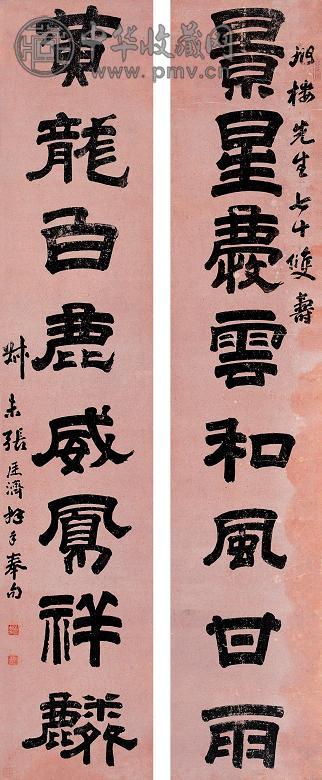 中华收藏网
www.pmv.cn
樓先生七十雙壽
景星慶雲和風甘雨
黃龍白鹿威鳳祥麟
叔未張廷濟拜手奉